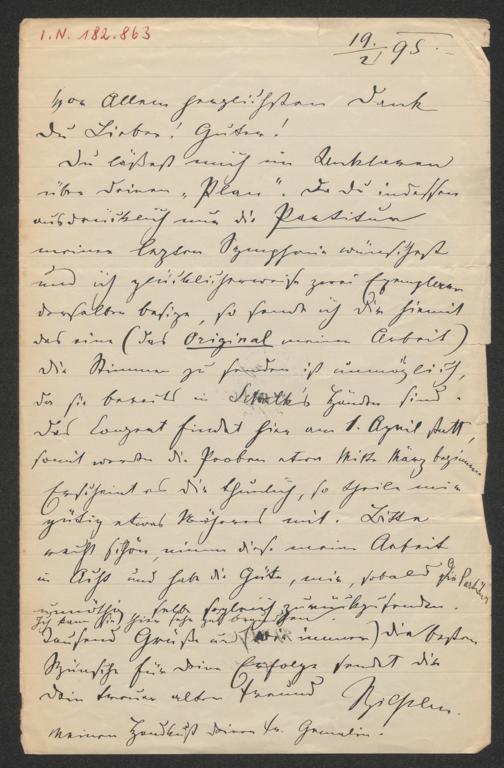 I.N. 182.863
19./2 95.
Vor Allem herzlichsten Dank
Du Lieber! Guter!
Du läßest mich im Unklaren
über Deinen „Plan". Da Du indessen
ausdrücklich nur die Partitur
meiner letzten Symphonie wünschest
und ich glücklicherweise zwei Exemplare
derselben besitze, so sende ich Dir hiemit
das eine (das Original meiner Arbeit)
die Stimmen zu senden ist unmöglich,
da sie bereits in Schalk's Händen sind.
Das Conzert findet hier am 1. April statt,
somit werden die Proben etwa Mitte März beginnen
Erscheint es Dir thunlich, so theile mir
gütig etwas Näheres mit. Bitte
recht schön, nimm diese meine Arbeit
in Acht und habe die Güte, mir, sobald Dir Partitur
unnöthig, selbe sogleich zurückzusenden.
Ich kann sie hier sehr gut
Tausend Grüße und (wie immer) die besten
Wünsche für Deine Erfolge sendet Dir
Dein treuer alter Freund
Meinen Handkuß Deiner Fr. Gemalin.